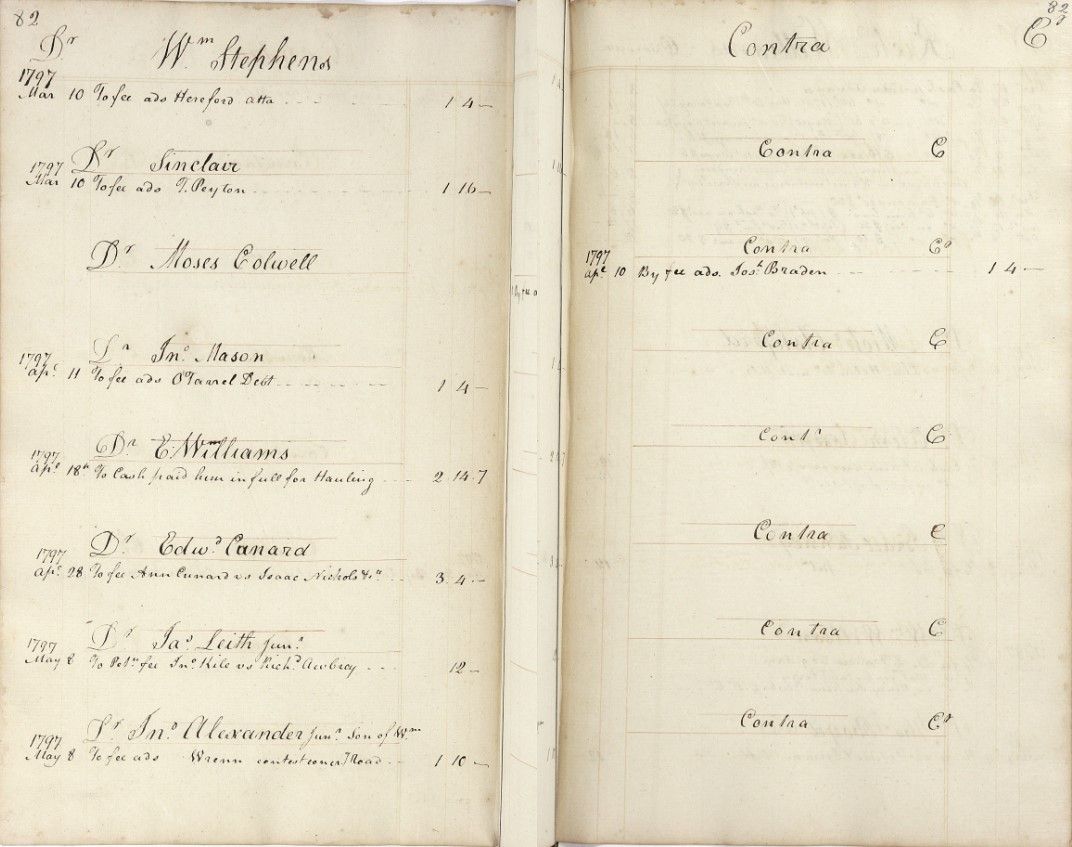 82
Dr Wm Stephens
1797
Mar 10 To fee ads Hereford atta 1 4 —
Dr Sinclair
1797
Mar 10 To fee ads T. Peyton 1 16 —
Dr Moses Colwell
Dr Jno Mason
1797
Apl 11 To fee ads OTarrel Debt 1 4 —
Dr E. Williams
1797
Apl 18th To Cash paid him in full for Hauling 2 14 7
Dr Edwd Cunard
1797
Apl 28 To fee Ann Cunard vs Isaac Nichols &c 3 4 —
Dr Jas Leith Junr
1797
May 8 To Petn fee Jno Kile vs Richd Awbrey 12 —
Dr Jno Alexander Junr Son of Wm
1797
May 8 To fee ads Wrenn contest Road 1 10 —
82
Contra Cr
Contra C
Contra Cr
1797
Apl 10 By fee ads. Jos. Braden 1 4 —
Contra C
Contr C
Contra C
Contra C
Contra Cr